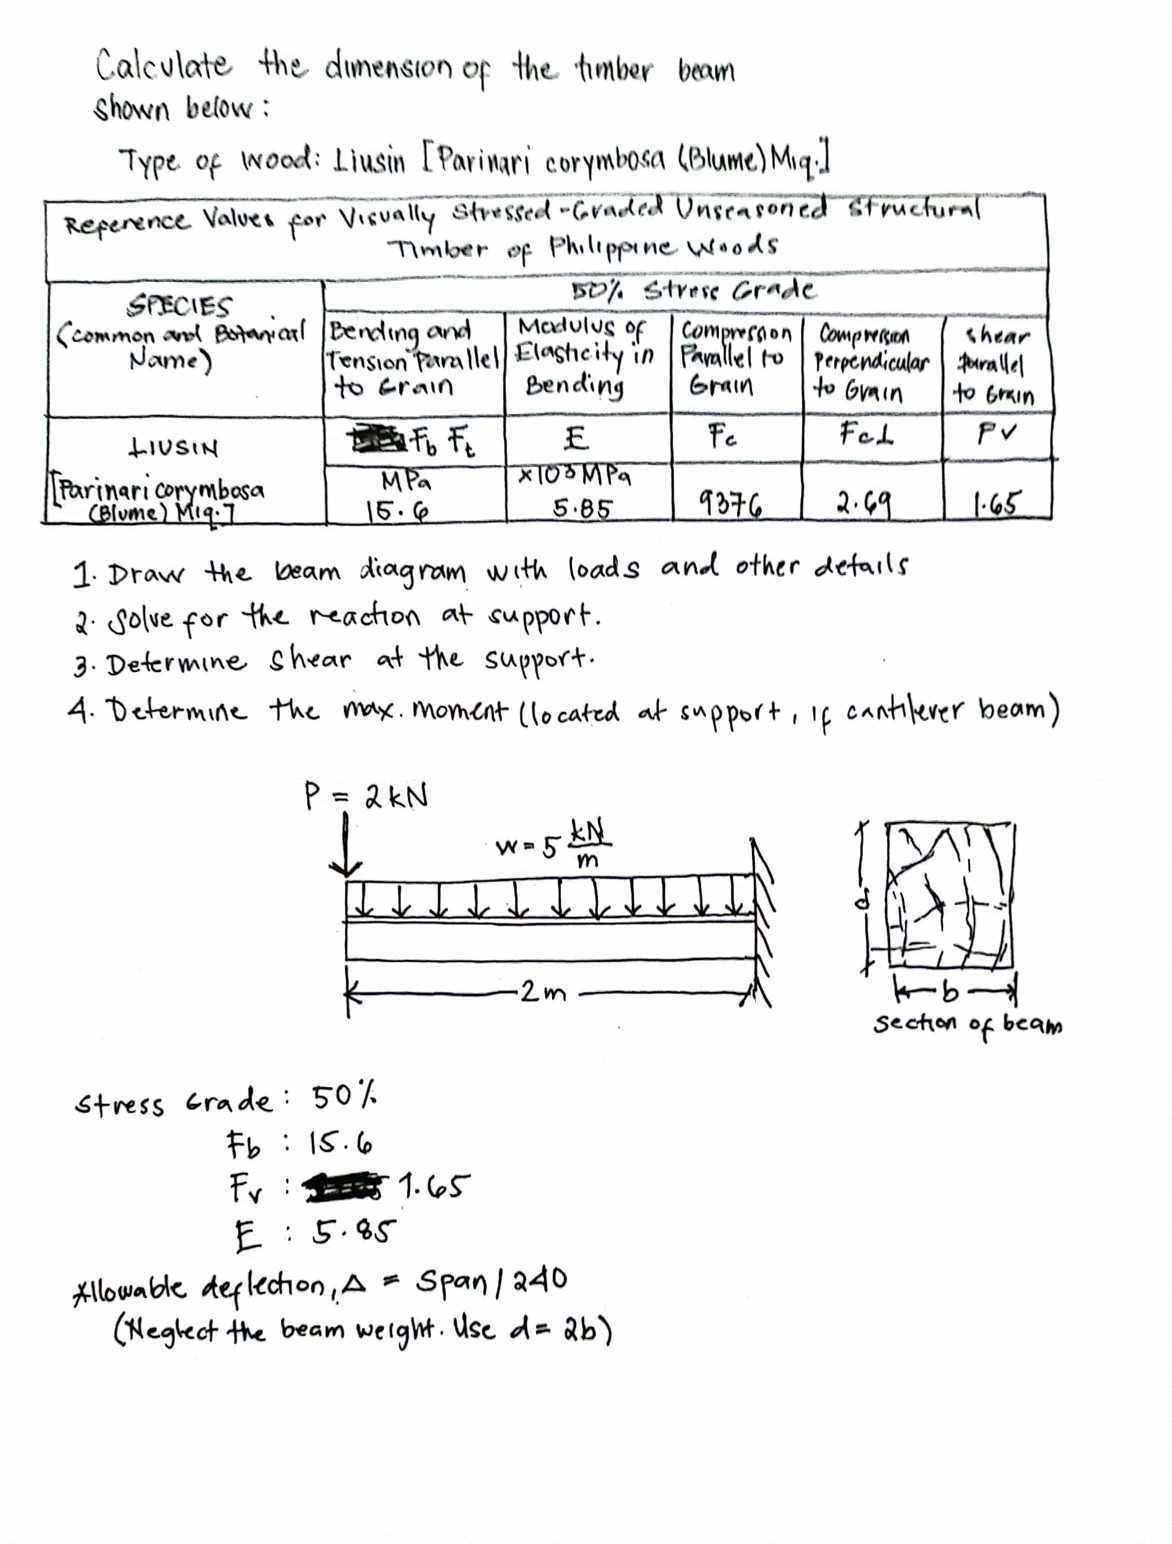 Calculate the dimension of the timber beam
shown below:
Type of wood: Liusin [Parinari corymbosa (Blume) Miq.]
Reference Values for Visually Stressed-Graded Unseasoned Structural
Timber of Philippine Woods
SPECIES
(Common and Botanical
Name)
50% Stress Grade
Bending and
Tension Parallel
to Grain
Modulus of
Elasticity in
Bending
Compression
Parallel to
Grain
Compression
Perpendicular
to Grain
Shear
Parallel
to Grain
LIUSIN
[Parinari corymbosa
(Blume) Miq.]
Fb Ft
E
Fc
Fc⊥
FV
MPa
15.6
x103 MPa
5.85
9376
2.69
1.65
1. Draw the beam diagram with loads and other details
2. Solve for the reaction at support.
3. Determine shear at the support.
4. Determine the max. moment (located at support, if cantilever beam)
P = 2 kN
w = 5 kN/m
2m
d
b
section of beam
Stress Grade : 50%
Fb : 15.6
Fv : 1.65
E : 5.85
Allowable deflection, Δ = Span / 240
(Neglect the beam weight. Use d = 2b)